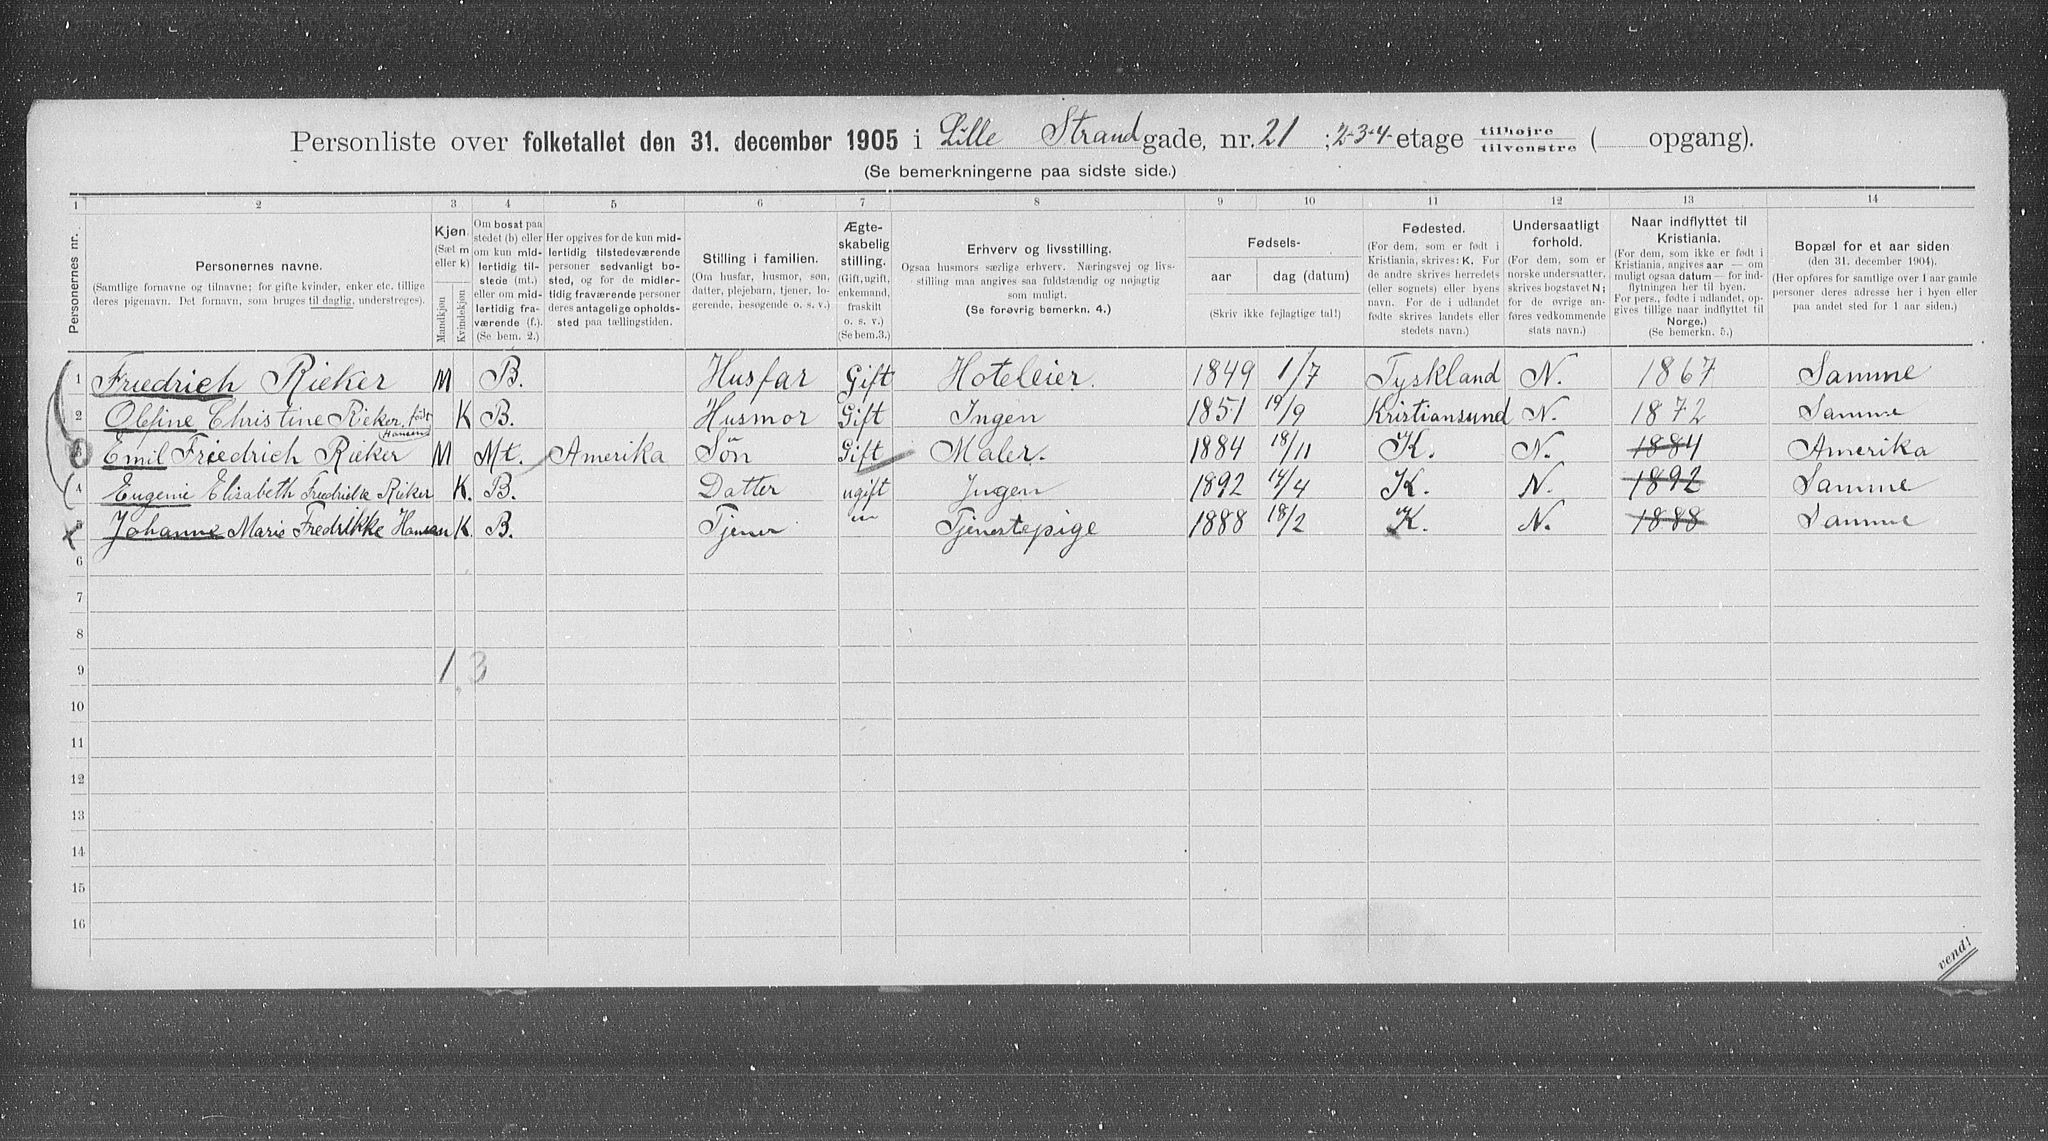 Personliste over folketallet den 31. december 1905 i Lille Strandgade, nr. 21 ; 2-3-4- etage tilhøjre tilvenstre ( opgang).
(Se bemerkningerne paa sidste side.)
1 2 3 4 5 6 7 8 9 10 11 12 13 14
Personernes nr.
Personernes navne.
(Samtlige fornavne og tilnavne; for gifte kvinder, enker etc. tillige
deres pigenavn. Det fornavn, som bruges til daglig, understreges).
Kjøn.
(Sæt m
eller k)
Mandkjøn
Kvindekjøn
Om bosat paa
stedet (b) eller
om kun mid-
lertidig til-
stede (mt.)
eller om mid-
lertidig fra-
værende (f.).
(Se bem. 2.)
Her opgives for de kun mid-
lertidig tilstedeværende
personer sedvanlig bo-
sted, og for de midler-
tidig fraværende personer
deres antagelige opholds-
sted paa tællingstiden.
Stilling i familien.
(Om husfar, husmor, søn,
datter, plejebarn, tjener, lo-
gerende, besøgende o. s. v.)
Ægte-
skabelig
stilling.
(Gift, ugift,
enkemand,
fraskilt
o. s. v.)
(Se bem.3.)
Erhverv og livsstilling.
Ogsaa husmors særlige erhverv. Næringsvej og livs-
stilling maa angives saa fuldstændig og nøjagtig
som muligt.
(Se forøvrig bemerkn. 4.)
Fødsels-
aar dag (datum)
(Skriv ikke fejlagtige tal!)
Fødested.
(For dem, som er født i
Kristiania, skrives: K. For
de andre skrives herredets
(eller sognets) eller byens
navn. For de i udlandet
fødte skrives landets eller
stedets navn.)
Undersaatligt
forhold.
(For dem, som er
norske undersaatter,
skrives bogstavet N;
for de øvrige an-
føres vedkommende
stats navn.)
Naar indflyttet til
Kristiania.
(For dem, som ikke er født i
Kristiania, angives aar — om
muligt ogsaa datum — for ind-
flytningen her til byen.
For pers., fødte i udlandet, op-
gives tillige naar indflyttet til
Norge.)
(Se bemerkn. 5.)
Bopæl for et aar siden
(den 31. december 1904).
(Her opføres for samtlige over 1 aar gamle
personer deres adresse her i byen eller
paa andet sted for 1 aar siden.)
1 Friedrich Rieker M B. Husfar Gift Hoteleier. 1849 1/7 Tyskland N. 1867 Samme
2 Olefine Christine Rieker. født Hansen K B. Husmor Gift Ingen 1851 19/9 Kristiansund N. 1872 Samme
3 Emil Friedrich Rieker M Mt. Amerika Søn Gift Maler. 1884 18/11 K. N. 1884 Amerika
4 Eugenie Elisabeth Fredrikke Rieker K. B. Datter ugift Ingen 1892 14/4 K. N. 1892 Samme
5 Johanne Marie Fredrikke Hansen K. B. Tjener " Tjenestepige 1888 18/2 K. N. 1888 Samme
6
7
8
9 1 3
10
11
12
13
14
15
16
vend!